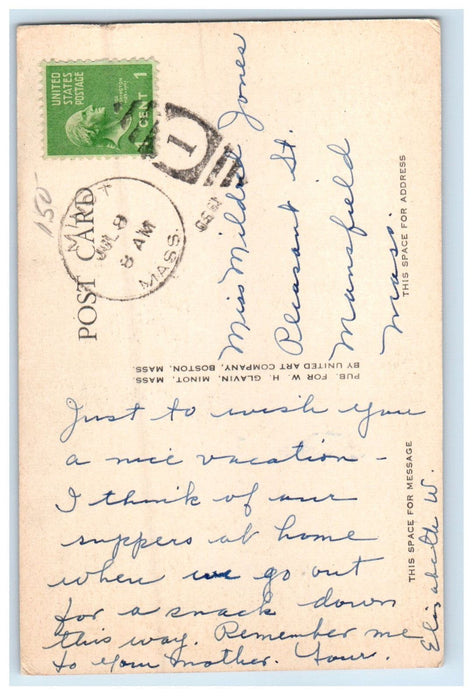 UNITED
STATES
POSTAGE
1 CENT
150
MINOT
JUL 8
8 AM
MASS.
1
POST CARD
Miss Mildred Jones
Pleasant St.
Mansfield
Mass.
THIS SPACE FOR ADDRESS
PUB. FOR W. H. GLAVIN, MINOT, MASS.
BY UNITED ART COMPANY, BOSTON, MASS.
THIS SPACE FOR MESSAGE
Just to wish you
a nice vacation -
I think of our
suppers at home
when we go out
for a snack down
this way. Remember me
to your mother. Your.
Elizabeth W.